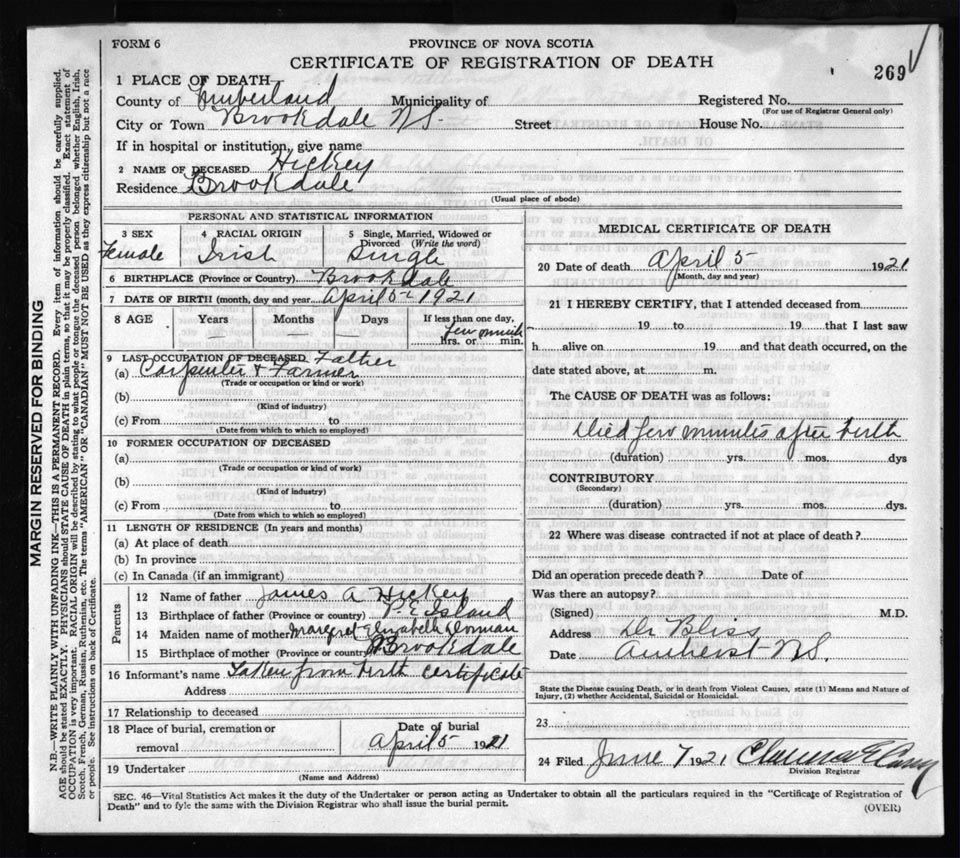 FORM 6
PROVINCE OF NOVA SCOTIA
CERTIFICATE OF REGISTRATION OF DEATH
269
1 PLACE OF DEATH
County of Cumberland Municipality of Registered No.
(For use of Registrar General only)
City or Town Brookdale N.S. Street House No.
If in hospital or institution, give name
2 NAME OF DECEASED Hickey
Residence Brookdale
(Usual place of abode)
PERSONAL AND STATISTICAL INFORMATION
3 SEX
Female
4 RACIAL ORIGIN
Irish
5 Single, Married, Widowed or Divorced (Write the word)
Single
6 BIRTHPLACE (Province or Country) Brookdale
7 DATE OF BIRTH (month, day and year) April 5 1921
8 AGE Years Months Days If less than one day,
few minits
hrs. or min.
9 LAST OCCUPATION OF DECEASED Father
(a) Carpenter & Farmer
(Trade or occupation or kind of work)
(b)
(Kind of industry)
(c) From to
(Date from which to which so employed)
10 FORMER OCCUPATION OF DECEASED
(a)
(Trade or occupation or kind of work)
(b)
(Kind of industry)
(c) From to
(Date from which to which so employed)
11 LENGTH OF RESIDENCE (In years and months)
(a) At place of death
(b) In province
(c) In Canada (if an immigrant)
Parents
12 Name of father James A Hickey
13 Birthplace of father (Province or country) P.E. Island
14 Maiden name of mother Margret Elizabeth Dorman
15 Birthplace of mother (Province or country) Brookdale
16 Informant's name Taken from birth certificate
Address
17 Relationship to deceased
18 Place of burial, cremation or removal
Date of burial
April 5 1921
19 Undertaker
(Name and Address)
MEDICAL CERTIFICATE OF DEATH
20 Date of death April 5 1921
(Month, day and year)
21 I HEREBY CERTIFY, that I attended deceased from
19 to 19 that I last saw
h alive on 19 and that death occurred, on the
date stated above, at m.
The CAUSE OF DEATH was as follows:
Died few minutes after birth
(duration) yrs. mos. dys
CONTRIBUTORY
(Secondary)
(duration) yrs. mos. dys.
22 Where was disease contracted if not at place of death?
Did an operation precede death? Date of
Was there an autopsy?
(Signed) M.D.
Address Dr Bliss
Date Amherst N.S.
State the Disease causing Death, or in death from Violent Causes, state (1) Means and Nature of
Injury, (2) whether Accidental, Suicidal or Homicidal.
23
24 Filed June 7 1921
Division Registrar
SEC. 46—Vital Statistics Act makes it the duty of the Undertaker or person acting as Undertaker to obtain all the particulars required in the "Certificate of Registration of
Death" and to fyle the same with the Division Registrar who shall issue the burial permit.
(OVER)
MARGIN RESERVED FOR BINDING
N.B.—WRITE PLAINLY WITH UNFADING INK—THIS IS A PERMANENT RECORD. Every item of information should be carefully supplied.
AGE should be stated EXACTLY. PHYSICIANS should STATE CAUSE OF DEATH in plain terms, so that it may be properly classified. Exact statement of
OCCUPATION is very important. RACIAL ORIGIN will be described by stating to what people or tongue the deceased person belonged whether English, Irish,
Scotch, French, German, Russian, Ruthenian, etc. The terms "AMERICAN" OR "CANADIAN" MUST NOT BE USED as they express citizenship but not a race
or people. See instructions on back of Certificate.